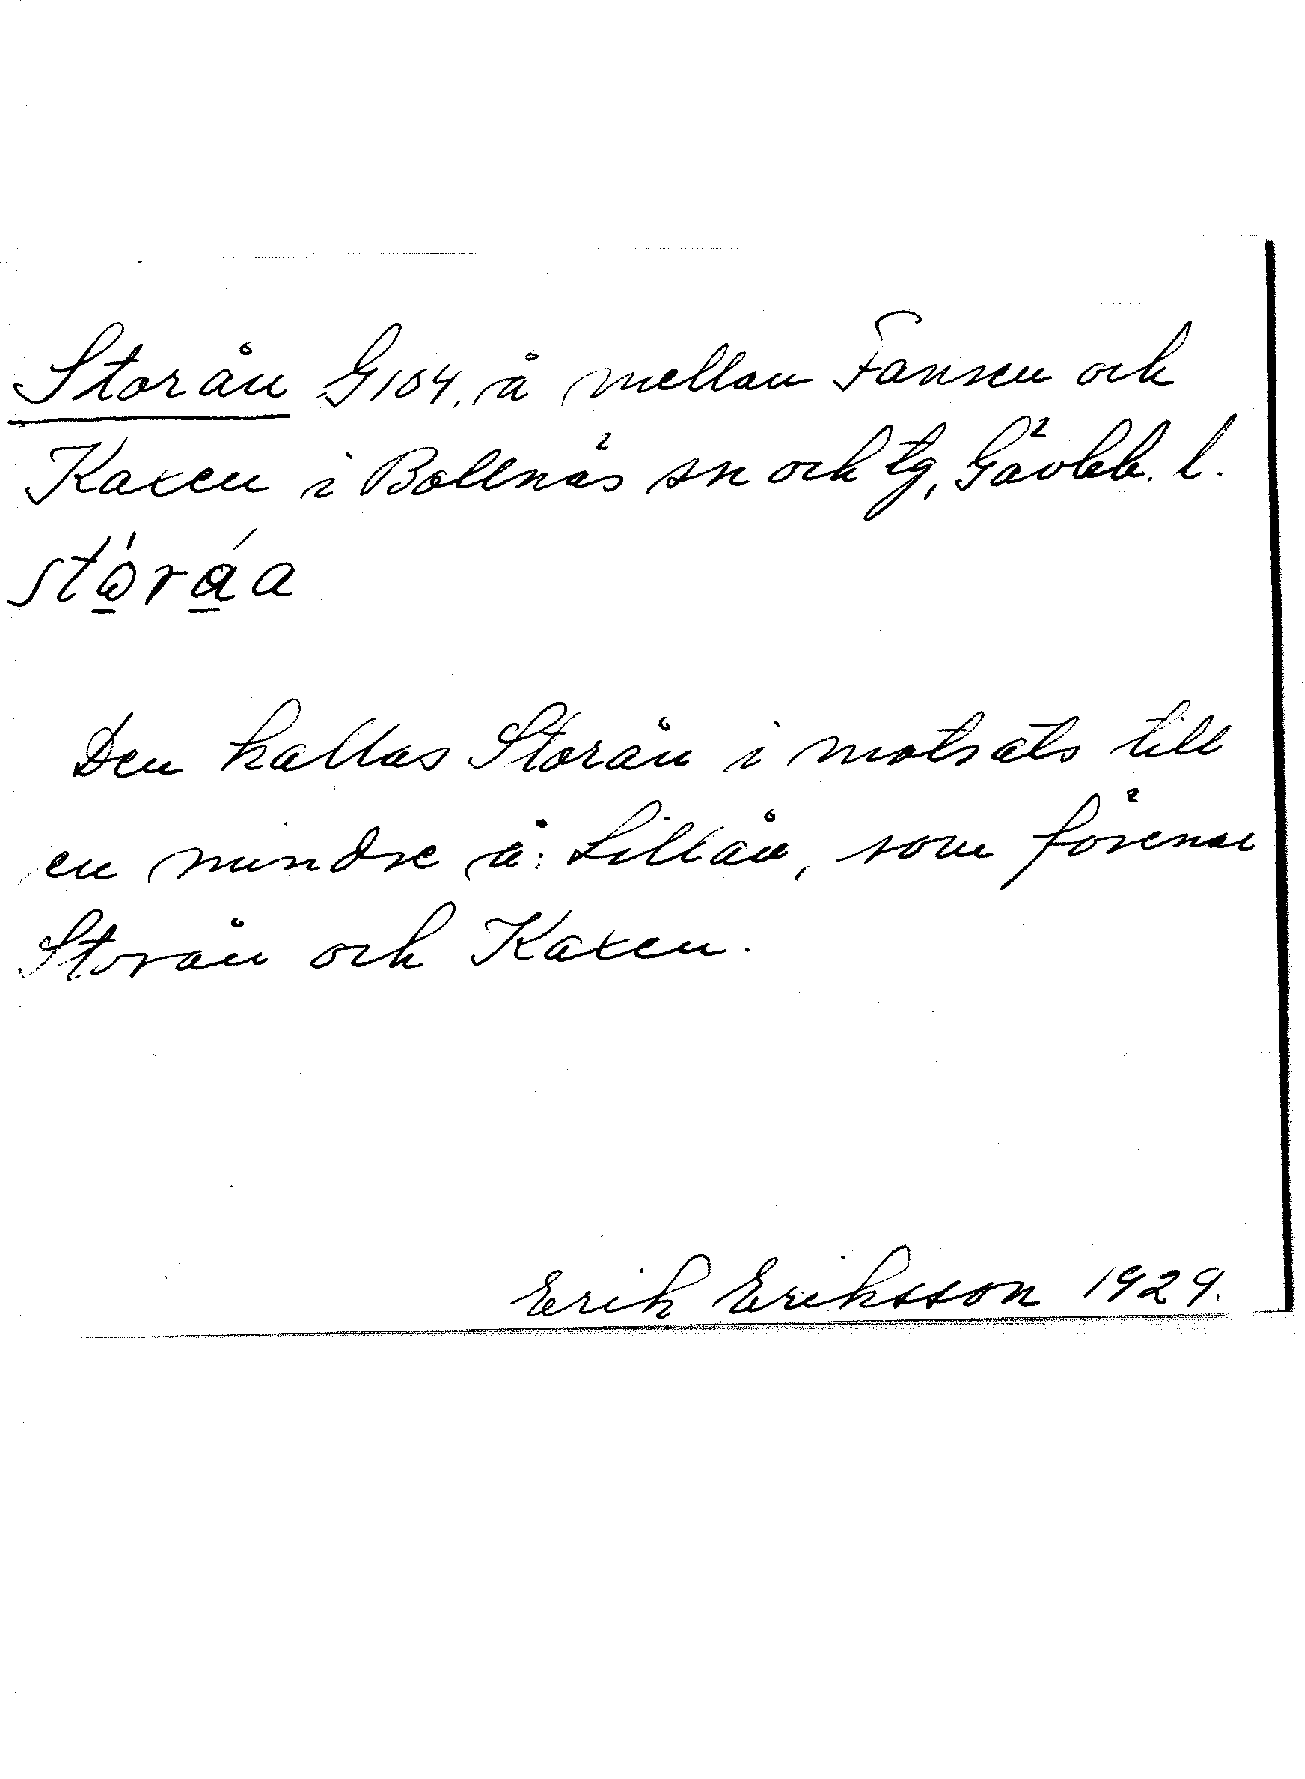 Storån G104, å mellan Fansen och
Kaxen i Bollnäs sn och tg, Gävleb. l.
stòràa
Den kallas Storån i motsats till
en mindre å: Lillån, som förenar
Storån och Kaxen.
Erik Eriksson 1929.